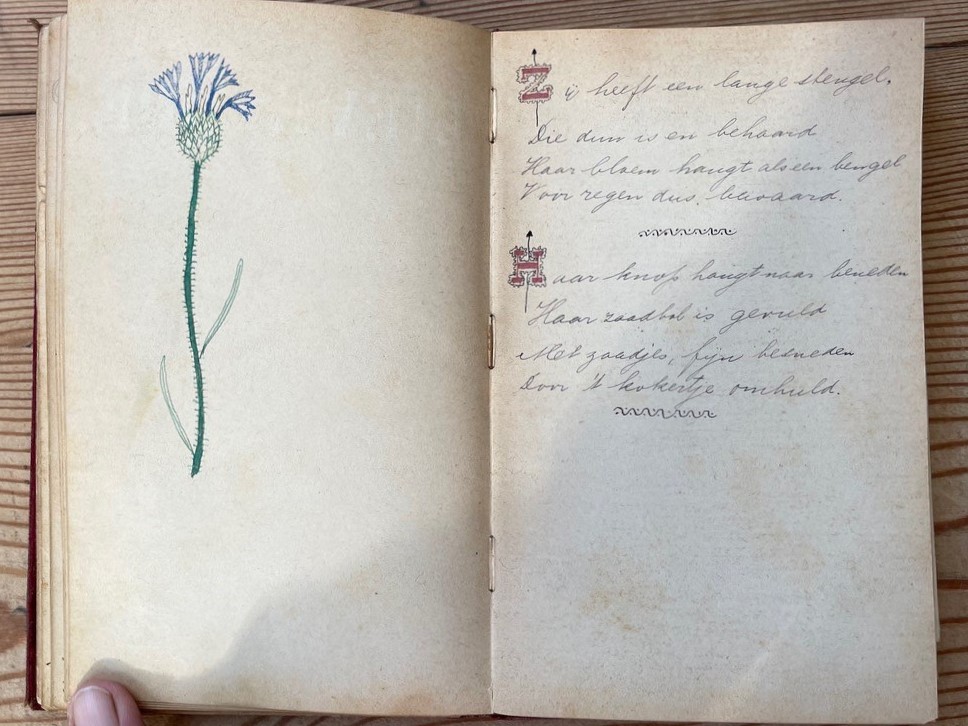 Zij heeft een lange stengel.
Die dun is en behaard
Haar bloem hangt als een bengel
Voor regen dus, bewaard.
Haar knop hangt naar beneden
Haar zaadbol is gevuld
Met zaadjes, fijn besneden
Door 't kokertje omhuld.